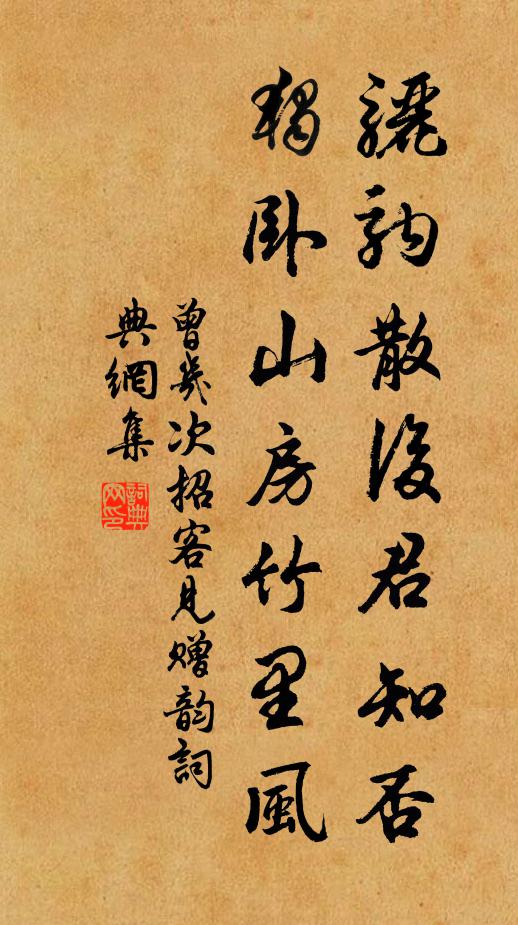 驪駒散後君知否
獨卧山房竹里風
曾幾次招客見贈韵詞
典網集
詞典
网印